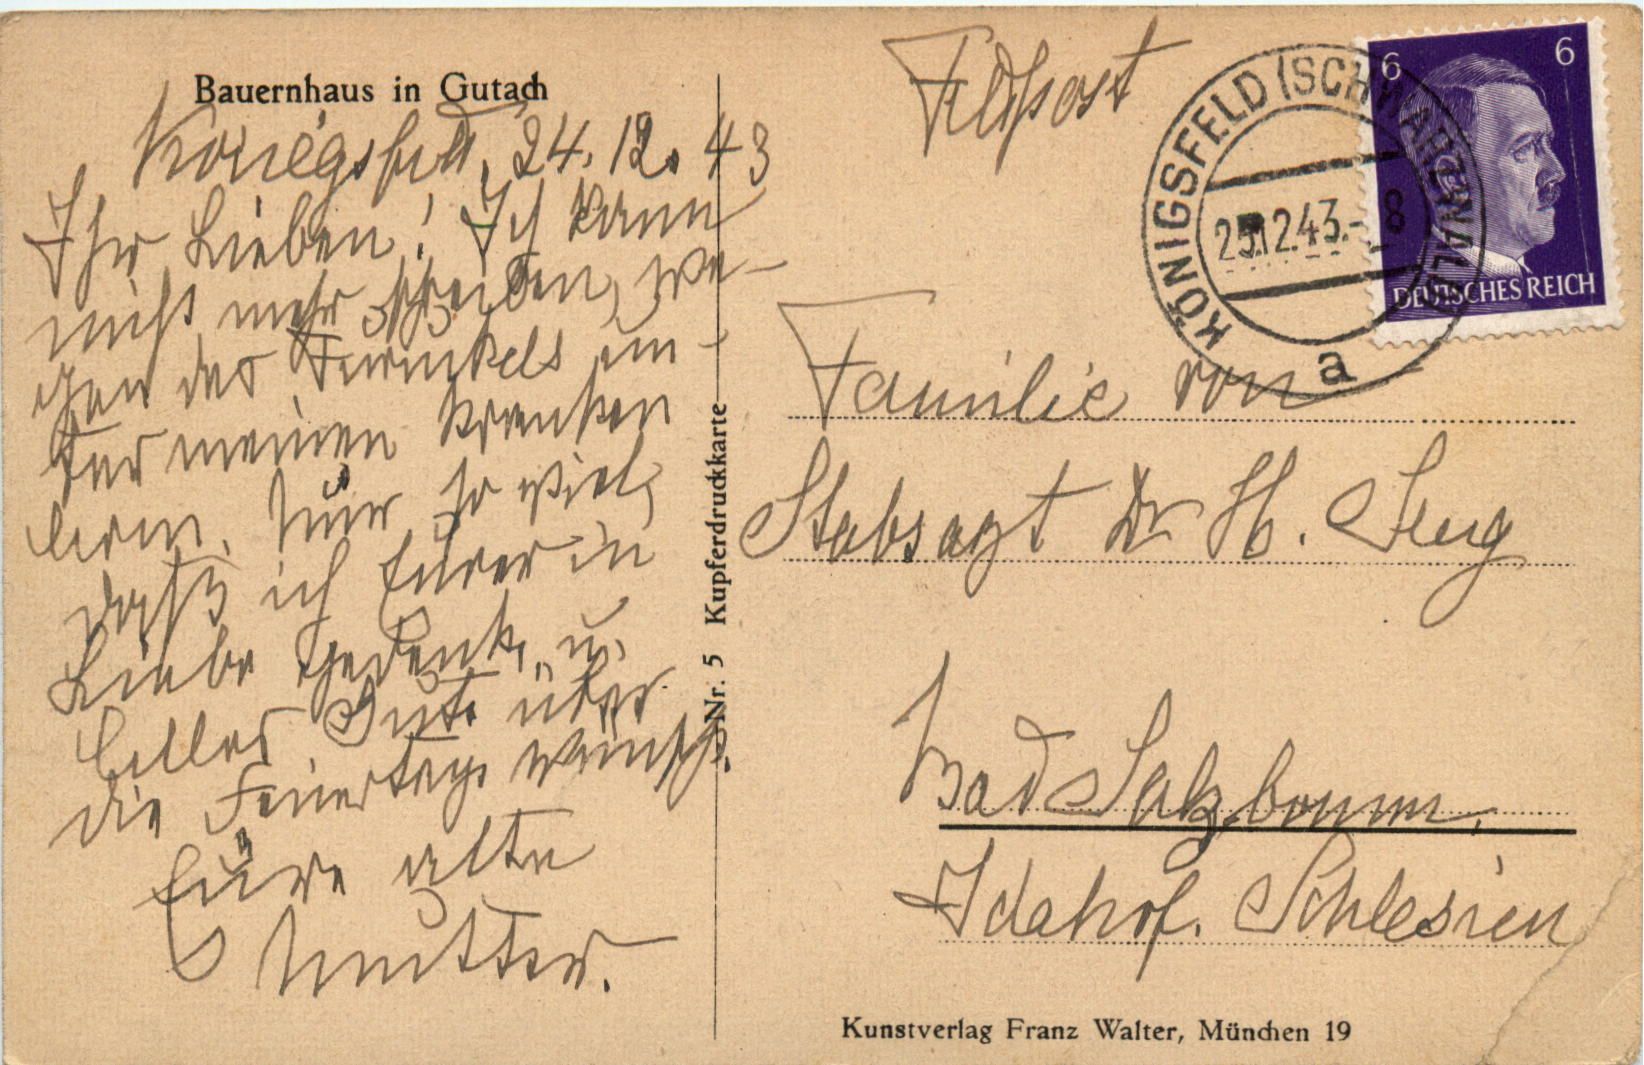 Bauernhaus in Gutach
Königsfeld, 24. 12. 43
Ihr Lieben! Ich kann
nicht mehr schreiben, we-
gen des Furunkels un-
ter meinen kranken
Nur so viel,
daß ich Eurer in
Liebe gedenke, u.
Gute über
die Feiertage wünsche.
Eure alte
Mutter.
Nr. 5 Kupferdruckkarte
Feldpost
KÖNIGSFELD (SCHWARZWALD)
25.12.43.-8
a
6 6
DEUTSCHES REICH
Familie von
Stabsarzt Dr H.
Bad Salzbrunn,
Idahof. Schlesien
Kunstverlag Franz Walter, München 19